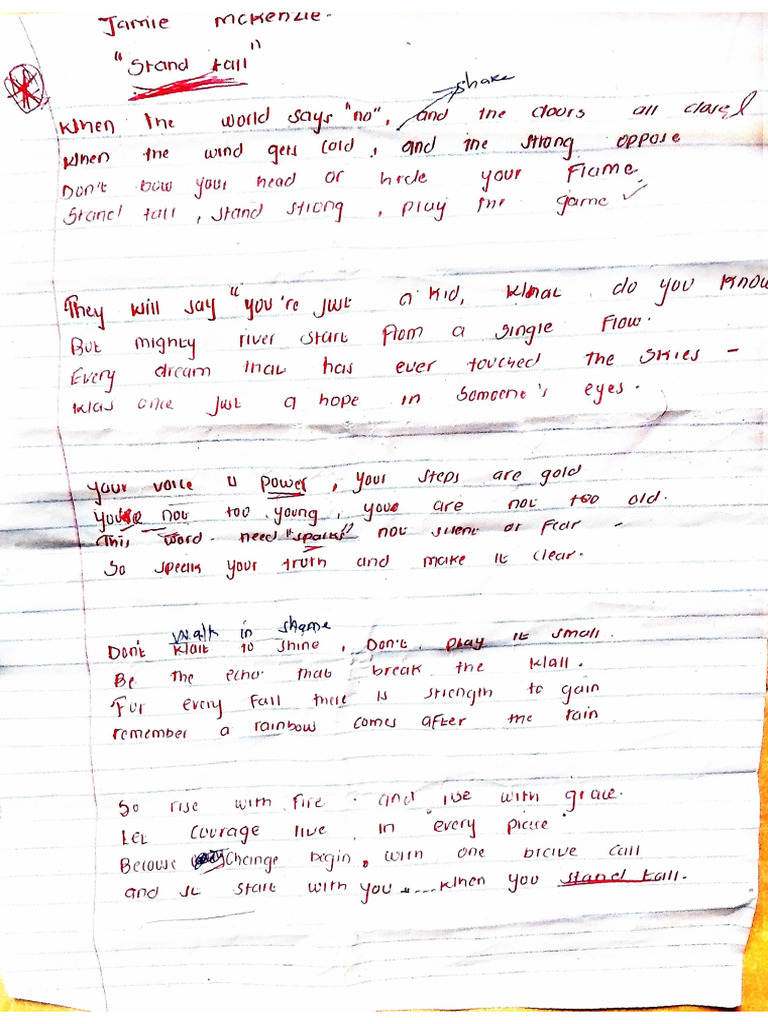 Jamie McKenzie.
"Stand tall"
shake
When the world says "no", and the doors all closed
When the wind gets cold, and the strong oppose
Don't bow your head or hide your Flame.
Stand tall, stand strong, play the game ✓
They will say "you're just a kid, What do you know
But mighty river start from a single flow.
Every dream that has ever touched the skies -
Was once just a hope in someone's eyes.
your voice is power, your steps are gold
You're not too young, you are not too old.
This word need "sparks" not silent or fear -
So speak your truth and make it clear.
Walk in shame
Don't Wait to shine, Don't play it small.
Be the echo that break the Wall.
For every fall there is strength to gain
remember a rainbow comes after the rain
So rise with fire and rise with grace.
Let courage live in every place.
Because Change begin, with one brave call
and it start with you .... When you stand tall.